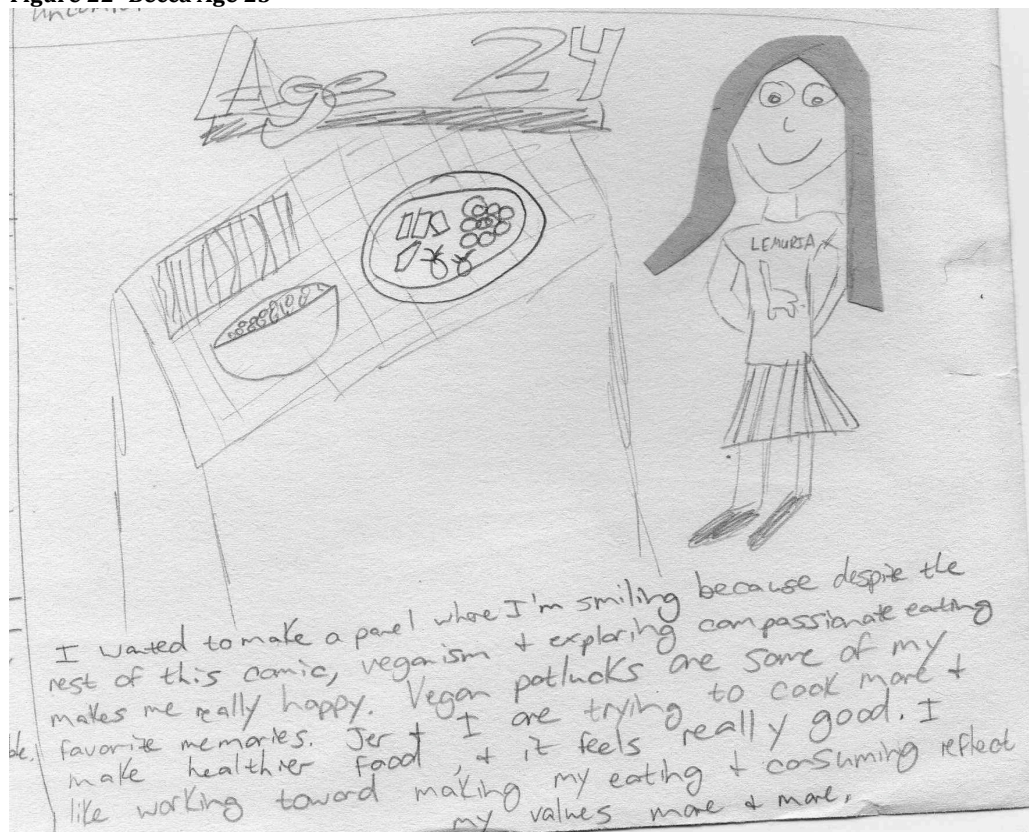 Figure 22 Becca Age 23
uncomfor
Age 24
LEMURIA
I wanted to make a panel where I'm smiling because despite the
rest of this comic, veganism + exploring compassionate eating
makes me really happy. Vegan potlucks are some of my
favorite memories. Jer + I are trying to cook more +
make healthier food, + it feels really good. I
like working toward making my eating + consuming reflect
my values more + more.